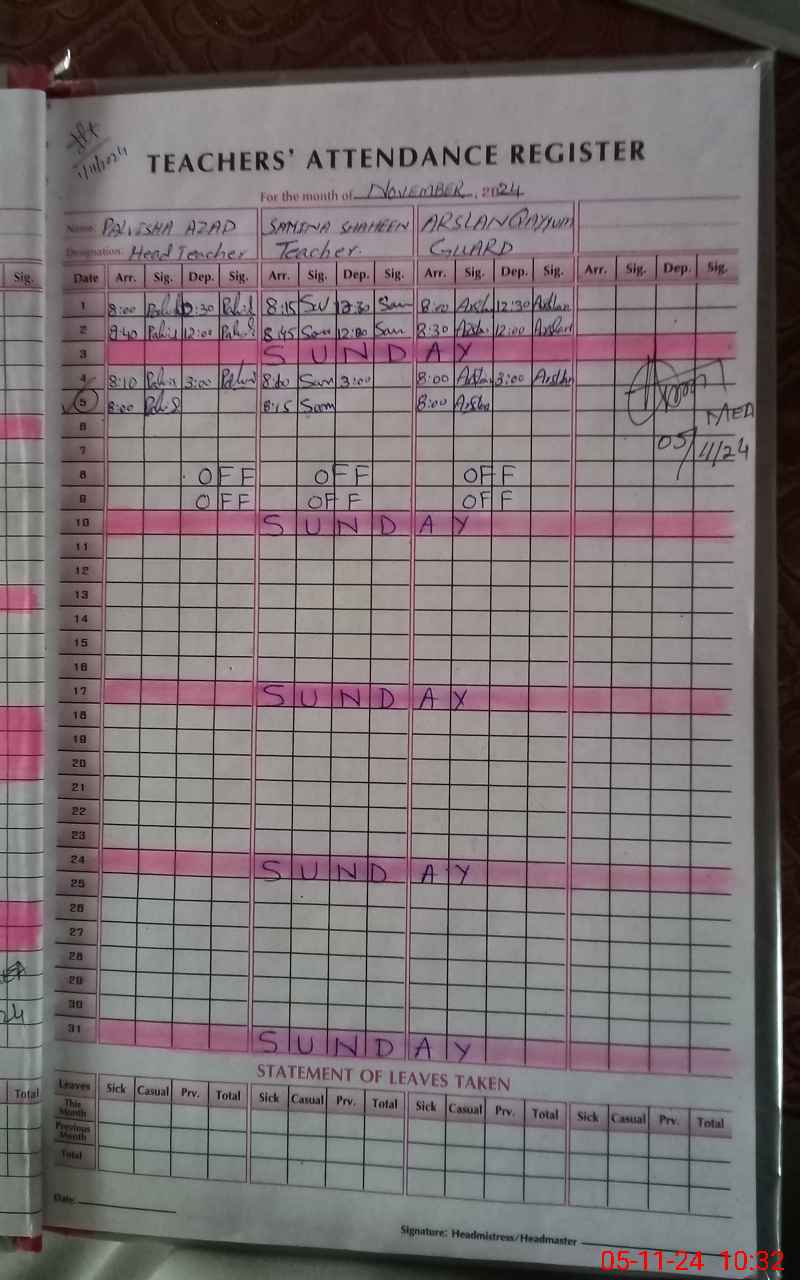 1/11/2024
TEACHERS' ATTENDANCE REGISTER
For the month of NOVEMBER, 2024
Name: PALVISHA AZAD SAMINA SHAHEEN ARSLAN QAYYUM
Designation: Head Teacher Teacher. GUARD
Sig. Date Arr. Sig. Dep. Sig. Arr. Sig. Dep. Sig. Arr. Sig. Dep. Sig. Arr. Sig. Dep. Sig.
1 8:00 12:30 8:15 12:30 Sam 8:00 12:30 Arslan
2 12:00 8:45 Sam 12:00 Sam 8:30 12:00 Arslan
3 SUNDAY
4 8:10 3:00 Sam 3:00 8:00 3:00
5 8:00 8:15 Sam 8:00
6
MEA
7
05/11/24
8 OFF OFF OFF
9 OFF OFF OFF
10 SUNDAY
11
12
13
14
15
16
17 SUNDAY
18
19
20
21
22
23
24 SUNDAY
25
26
27
28
29
30
31 SUNDAY
STATEMENT OF LEAVES TAKEN
Total Leaves Sick Casual Prv. Total Sick Casual Prv. Total Sick Casual Prv. Total Sick Casual Prv. Total
This Month
Previous Month
Total
Date
Signature: Headmistress/Headmaster
05-11-24 10:32